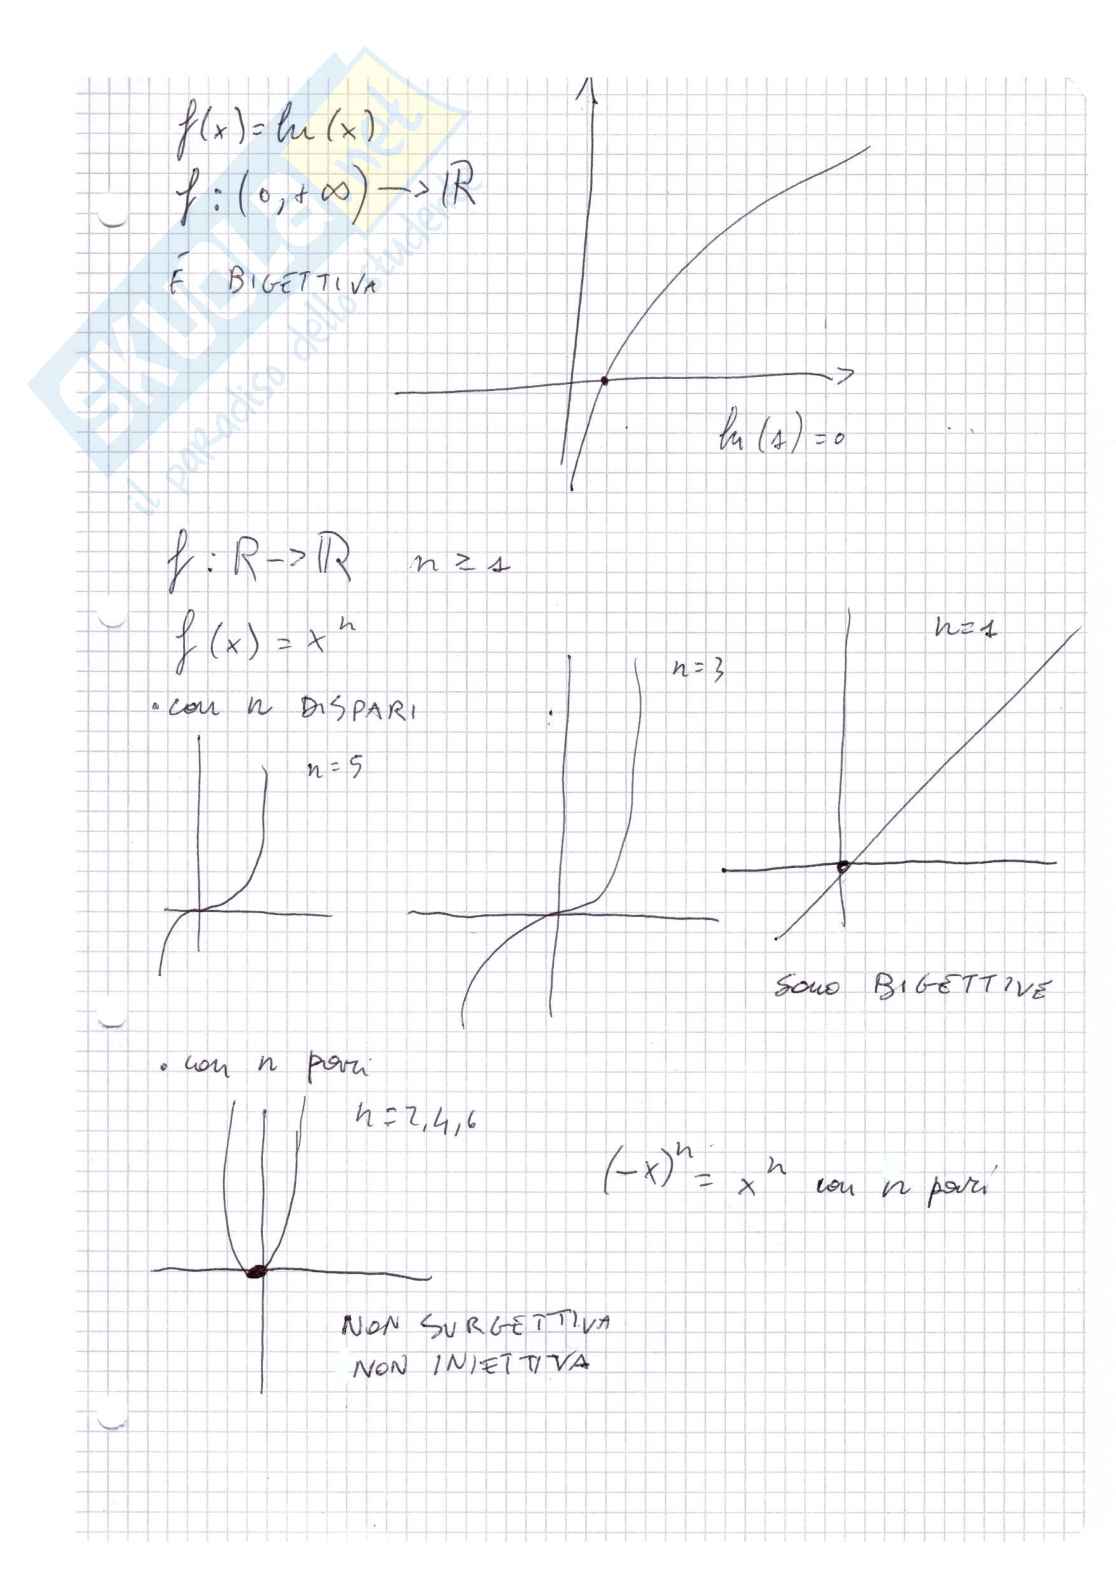 f(x) = ln (x)
f : (0, +∞) -> ℝ
È BIGETTIVA
ln (1) = 0
f : ℝ -> ℝ n ≥ 1
f (x) = x^n
• con n DISPARI
n = 5
n = 3
n = 1
SONO BIGETTIVE
• con n pari
n = 2, 4, 6
(-x)^n = x^n con n pari
NON SURGETTIVA
NON INIETTIVA
SKUOLA.net
il paradiso dello studente